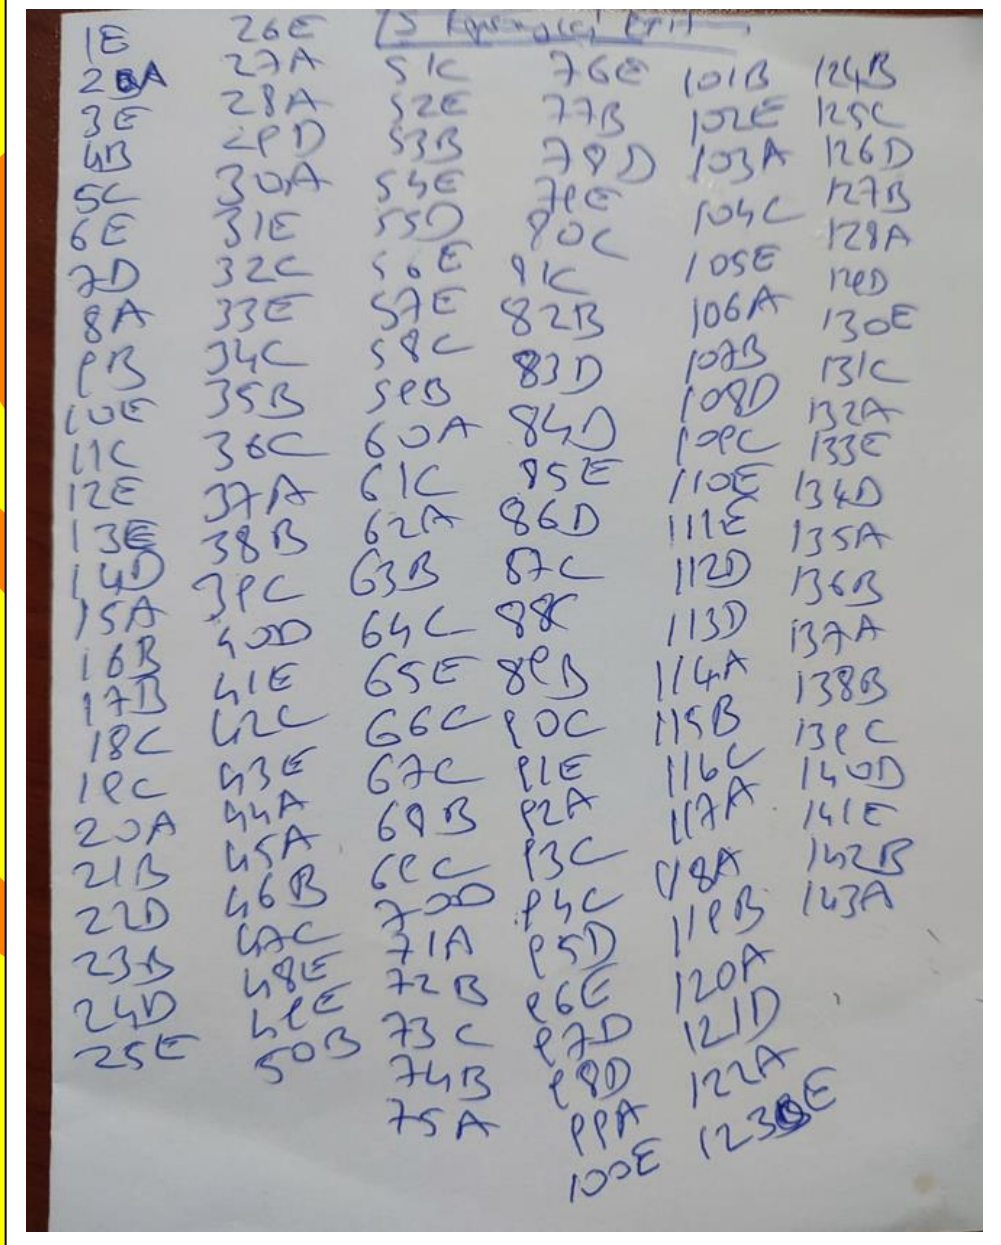 1E
2A
3E
4B
5C
6E
7D
8A
9B
10E
11C
12E
13E
14D
15A
16B
17B
18C
19C
20A
21B
22D
23B
24D
25E
26E
27A
28A
29D
30A
31E
32C
33E
34C
35B
36C
37A
38B
39C
40D
41E
42C
43E
44A
45A
46B
47C
48E
49E
50B
51C
52E
53B
54E
55D
56E
57E
58C
59B
60A
61C
62A
63B
64C
65E
66C
67C
68B
69C
70D
71A
72B
73C
74B
75A
76E
77B
78D
79E
80C
81C
82B
83D
84D
85E
86D
87C
88C
89B
90C
91E
92A
93C
94C
95D
96E
97D
98D
99A
100E
101B
102E
103A
104C
105E
106A
107B
108D
109C
110E
111E
112D
113D
114A
115B
116C
117A
118A
119B
120A
121D
122A
123E
124B
125C
126D
127B
128A
129D
130E
131C
132A
133E
134D
135A
136B
137A
138B
139C
140D
141E
142B
143A